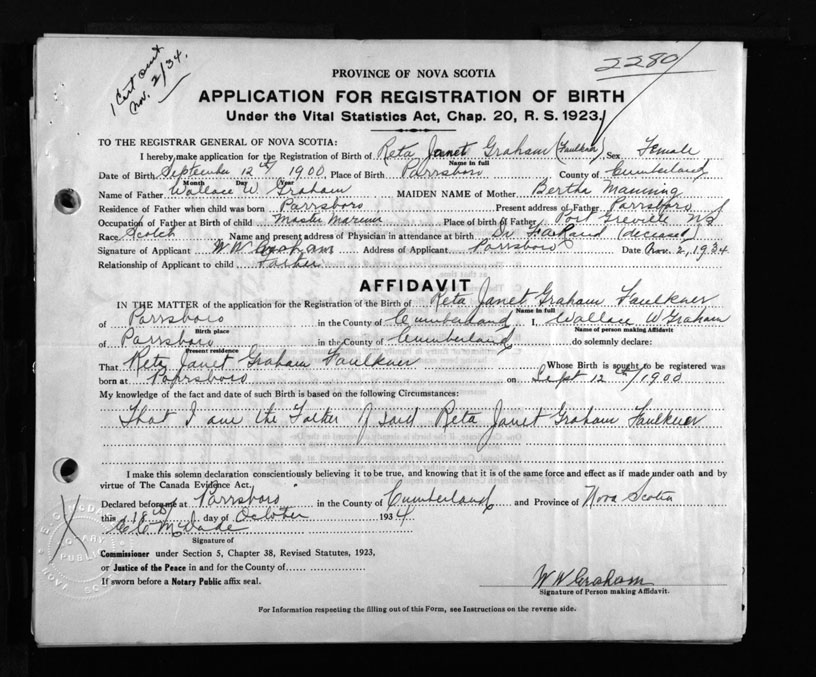 1 Cert sent
Nov. 2/34.
2280
PROVINCE OF NOVA SCOTIA
APPLICATION FOR REGISTRATION OF BIRTH
Under the Vital Statistics Act, Chap. 20, R. S. 1923.
TO THE REGISTRAR GENERAL OF NOVA SCOTIA:
I hereby make application for the Registration of Birth of Reta Janet Graham (Faulkner) Sex Female
Name in full
Date of Birth September 12th 1900 Place of Birth Parrsboro County of Cumberland
Month Day Year
Name of Father Wallace W. Graham MAIDEN NAME of Mother Bertha Manning
Residence of Father when child was born Parrsboro Present address of Father Parrsboro
Occupation of Father at Birth of child Master Mariner Place of birth of Father Port Greville NS
Race Scotch Name and present address of Physician in attendance at birth Dr. (deceased)
Signature of Applicant W W Graham Address of Applicant Parrsboro Date Nov. 2, 1934
Relationship of Applicant to child Father
AFFIDAVIT
IN THE MATTER of the application for the Registration of the Birth of Reta Janet Graham Faulkner
Name in full
of Parrsboro in the County of Cumberland I, Wallace W Graham
Birth place Name of person making Affidavit
of Parrsboro in the County of Cumberland do solemnly declare:
Present residence
That Reta Janet Graham Faulkner Whose Birth is sought to be registered was
born at Parrsboro on Sept 12th/1900
My knowledge of the fact and date of such Birth is based on the following Circumstances:
That I am the Father of said Reta Janet Graham Faulkner
I make this solemn declaration conscientiously believing it to be true, and knowing that it is of the same force and effect as if made under oath and by
virtue of The Canada Evidence Act.
Declared before me at Parrsboro in the County of Cumberland and Province of Nova Scotia
this 18th day of October 1934
McDade
Signature of
Commissioner under Section 5, Chapter 38, Revised Statutes, 1923,
or Justice of the Peace in and for the County of
If sworn before a Notary Public affix seal.
W W Graham
Signature of Person making Affidavit.
For Information respecting the filling out of this Form, see Instructions on the reverse side.